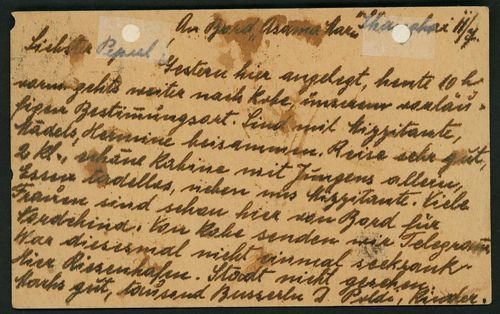 An Bord, Asama Maru Shanghai 11/7.
Liebster Pepperl!
Gestern hier angelegt, heute 10 h
vorm gehts weiter nach Kobe, unserem vorläu-
figen Bestimmungsort. Sind mit Mizzitante,
Mädels, Hermine beisammen. Reise sehr gut,
2 Kl., schöne Kabine mit Jungens allein,
Essen tadellos, neben uns Mizzitante. Viele
Frauen sind schon hier von Bord für
Südchina. Von Kobe senden wir Telegramm
War diesesmal nicht einmal seekrank
Hier Riesenhafen. Stadt nicht gesehen
Machs gut, tausend Busserln D Poldi, Kinder.